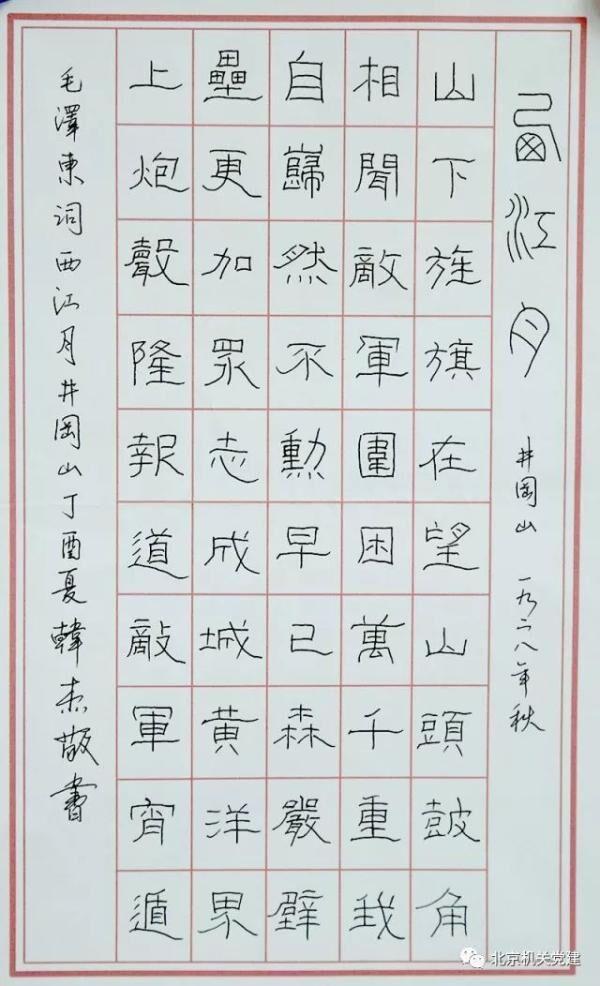 西江月
井岡山 一九二八年秋
山下旌旗在望山頭鼓角
相聞敵軍圍困萬千重我
自巋然不動早已森嚴壁
壘更加眾志成城黃洋界
上炮聲隆報道敵軍宵遁
毛澤東詞西江月井岡山丁酉夏韓書
北京机关党建